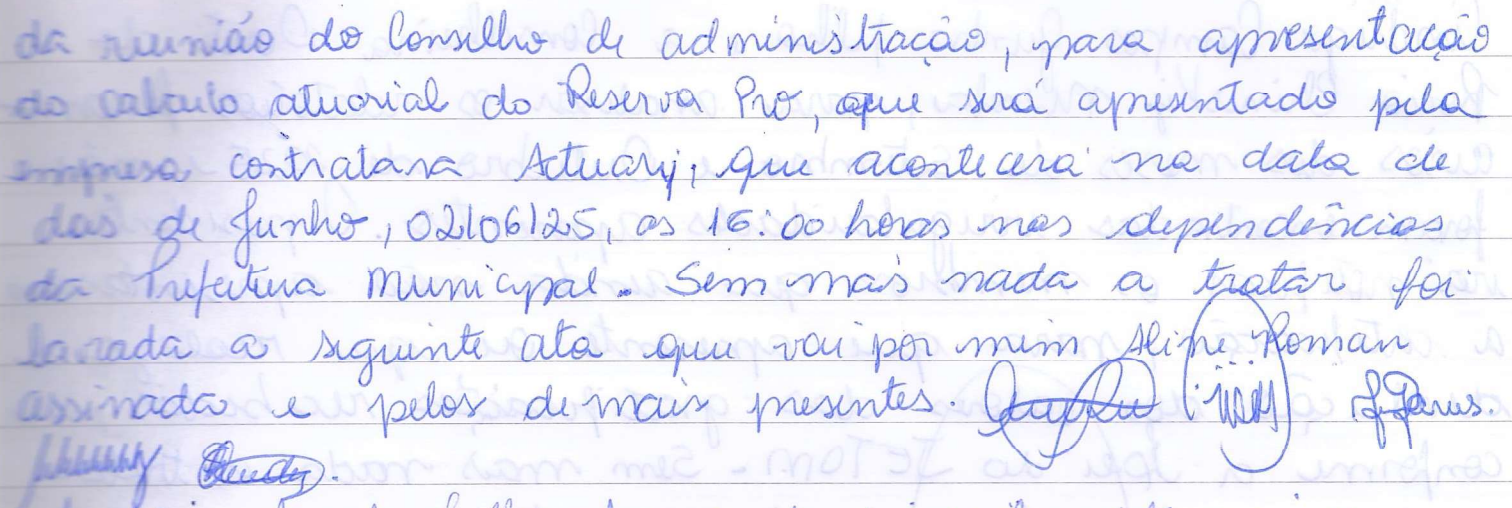 da reunião do Conselho de administração, para apresentação
do calculo atuarial do Reserva Pro, que será apresentado pela
empresa contratana Actuary, que acontecerá na data de
dois de Junho, 02/06/25, as 16:00 horas nas dependências
da Prefeitura Municipal. Sem mais nada a tratar foi
lavrada a seguinte ata que vai por mim Aline Roman
assinada e pelos demais presentes.